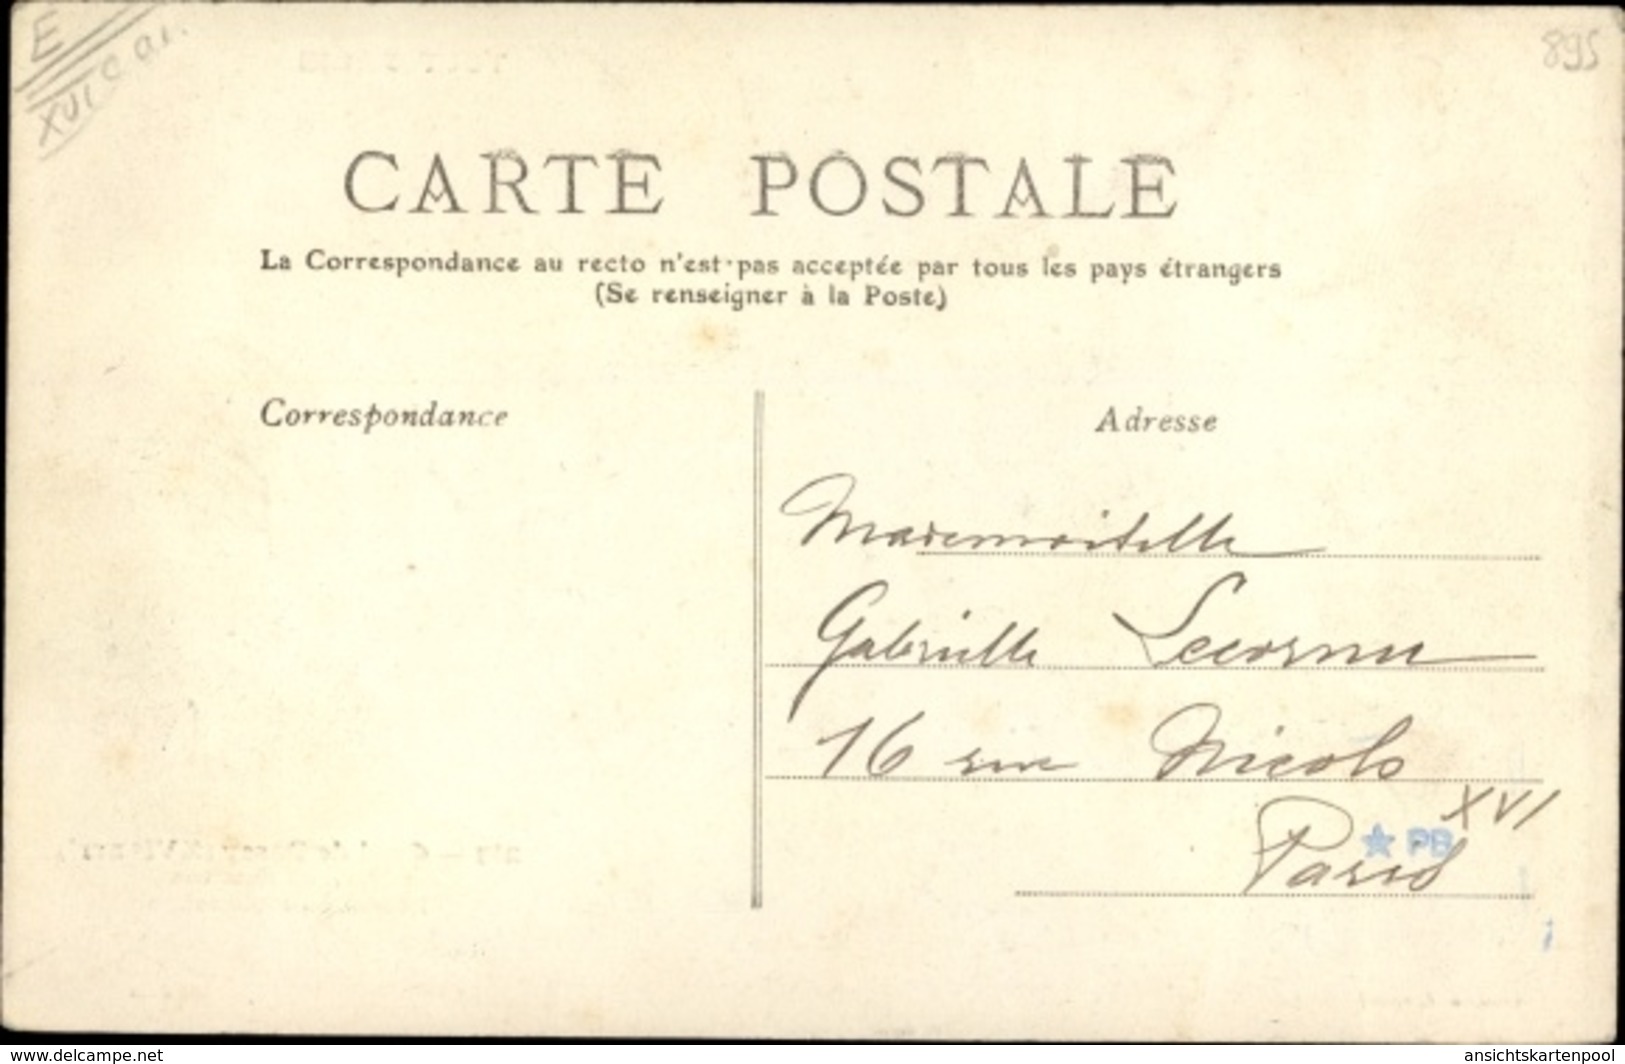 E
XVI e ar.
895
CARTE POSTALE
La Correspondance au recto n'est pas acceptée par tous les pays étrangers
(Se renseigner à la Poste)
Correspondance
Adresse
Mademoiselle
Gabrielle Lecornu
16 rue Nicolo
XVI
Paris
★ PB
www.delcampe.net
ansichtskartenpool